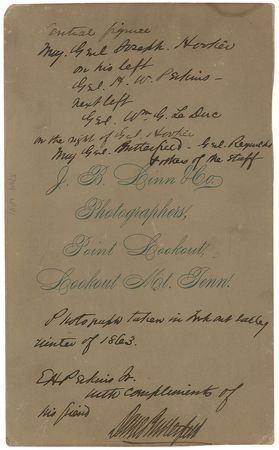 Central figure
Maj. Genl Joseph Hooker
on his left
Gel. H. W. Perkins -
next left
Gel. Wm G. Le Duc
on the right of Gel Hooker
Maj Genl. Butterfield - Gel. Reynolds
& others of the staff
J. B. Linn & Co.
Photographers,
Point Lookout,
Lookout Mt. Tenn.
Photograph taken in Lookout Valley
winter of 1863.
E. H. Perkins Jr.
with compliments of
his friend